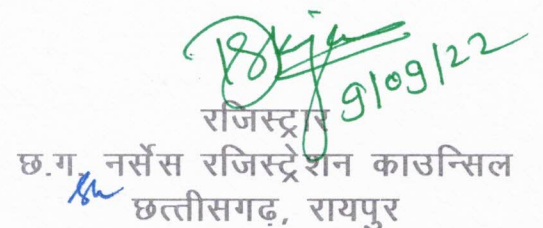 9/09/22
रजिस्ट्रार
छ.ग. नर्सेस रजिस्ट्रेशन काउन्सिल
छत्तीसगढ़, रायपुर